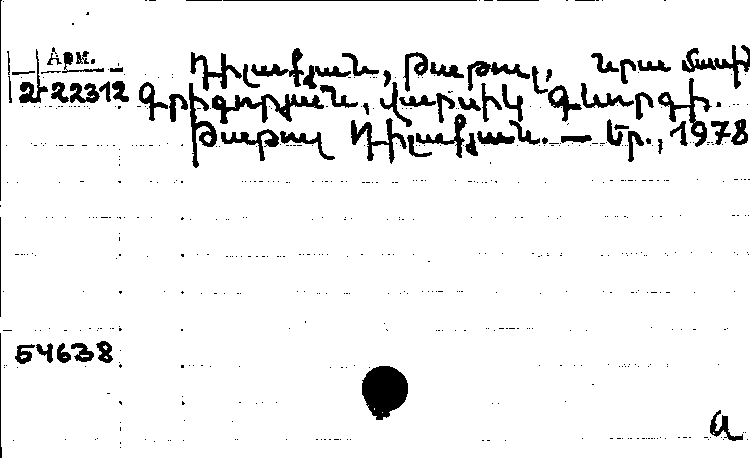 Арм.
2-22312
Դիլաքյան, Թաթուլ, նրա մասին
Գրիգորյան, Վարսիկ Գևորգի.
Թաթուլ Դիլաքյան. — Եր., 1978
54638
a